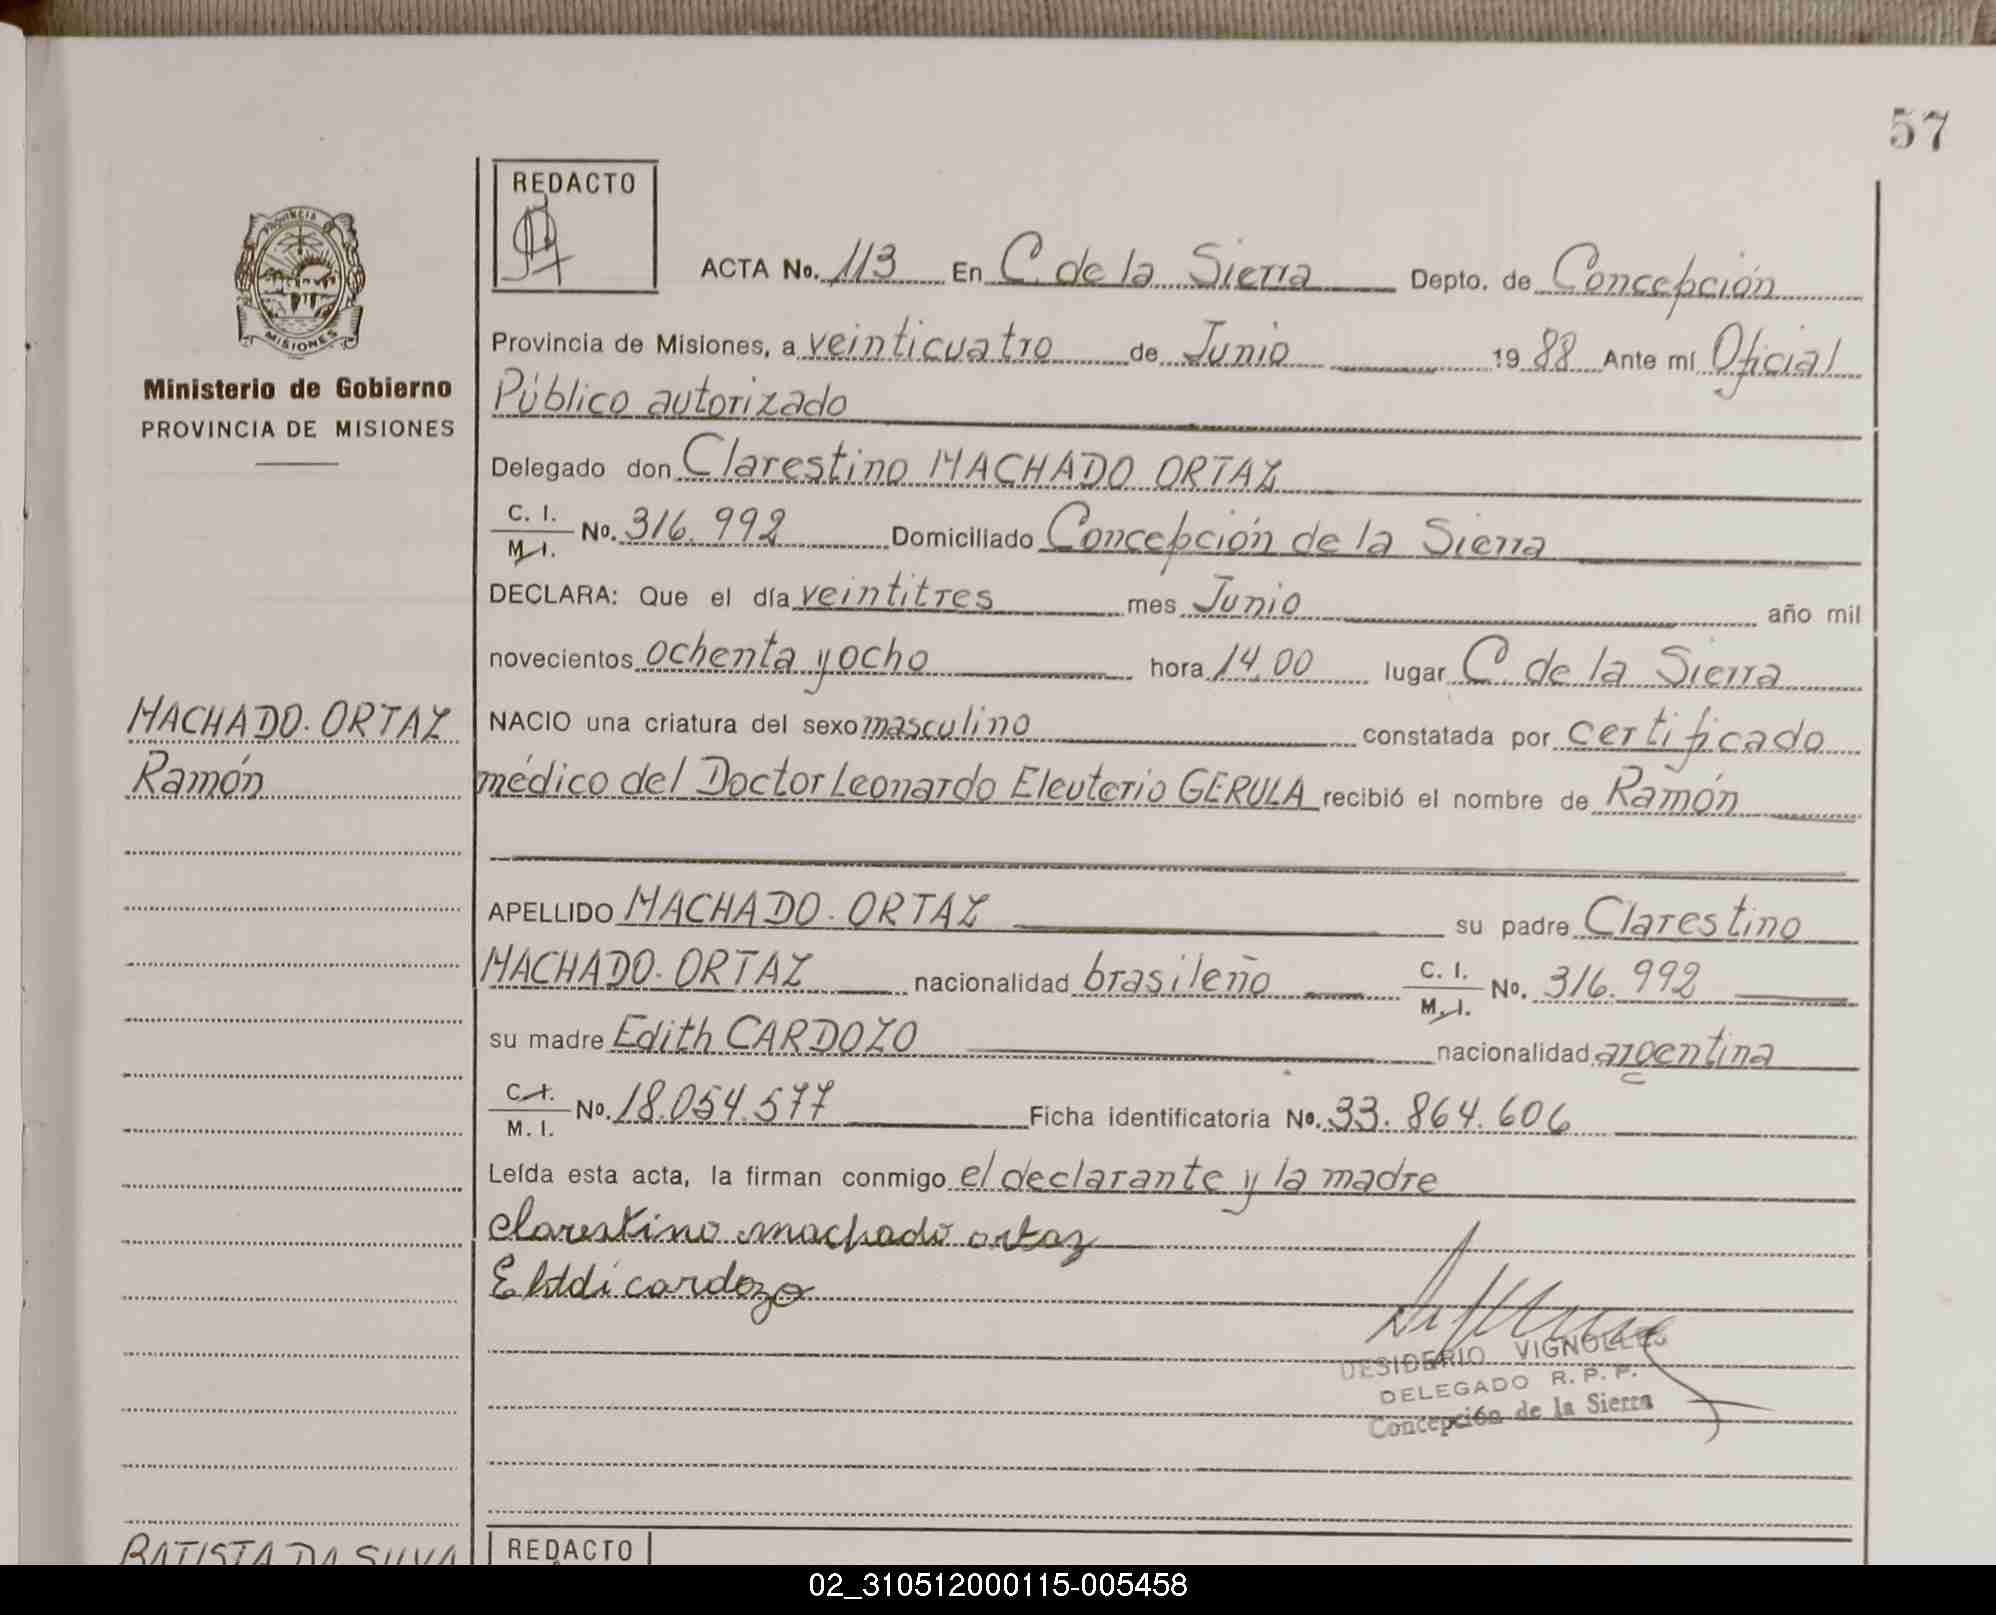 57
REDACTO
PROVINCIA
MISIONES
Ministerio de Gobierno
PROVINCIA DE MISIONES
ACTA No. 113 En C. de la Sierra Depto. de Concepción
Provincia de Misiones, a veinticuatro de Junio 1988 Ante mí Oficial
Público autorizado
Delegado don Clarestino MACHADO ORTAZ
C. I. / M. I. No. 316.992 Domiciliado Concepción de la Sierra
DECLARA: Que el día veintitres mes Junio año mil
novecientos ochenta y ocho hora 14,00 lugar C. de la Sierra
MACHADO. ORTAZ
Ramón
NACIO una criatura del sexo masculino constatada por certificado
médico del Doctor Leonardo Eleuterio GERULA recibió el nombre de Ramón
APELLIDO MACHADO. ORTAZ su padre Clarestino
MACHADO. ORTAZ nacionalidad brasileño C. I. / M. I. No. 316.992
su madre Edith CARDOZO nacionalidad argentina
C. I. / M. I. No. 18.054.577 Ficha identificatoria No. 33.864.606
Leída esta acta, la firman conmigo el declarante y la madre
clarestino machado ortaz
cardozo
DESIDERIO VIGNOLLES
DELEGADO R. P. P.
Concepción de la Sierra
BATISTA DA SILVA
REDACTO
02_310512000115-005458